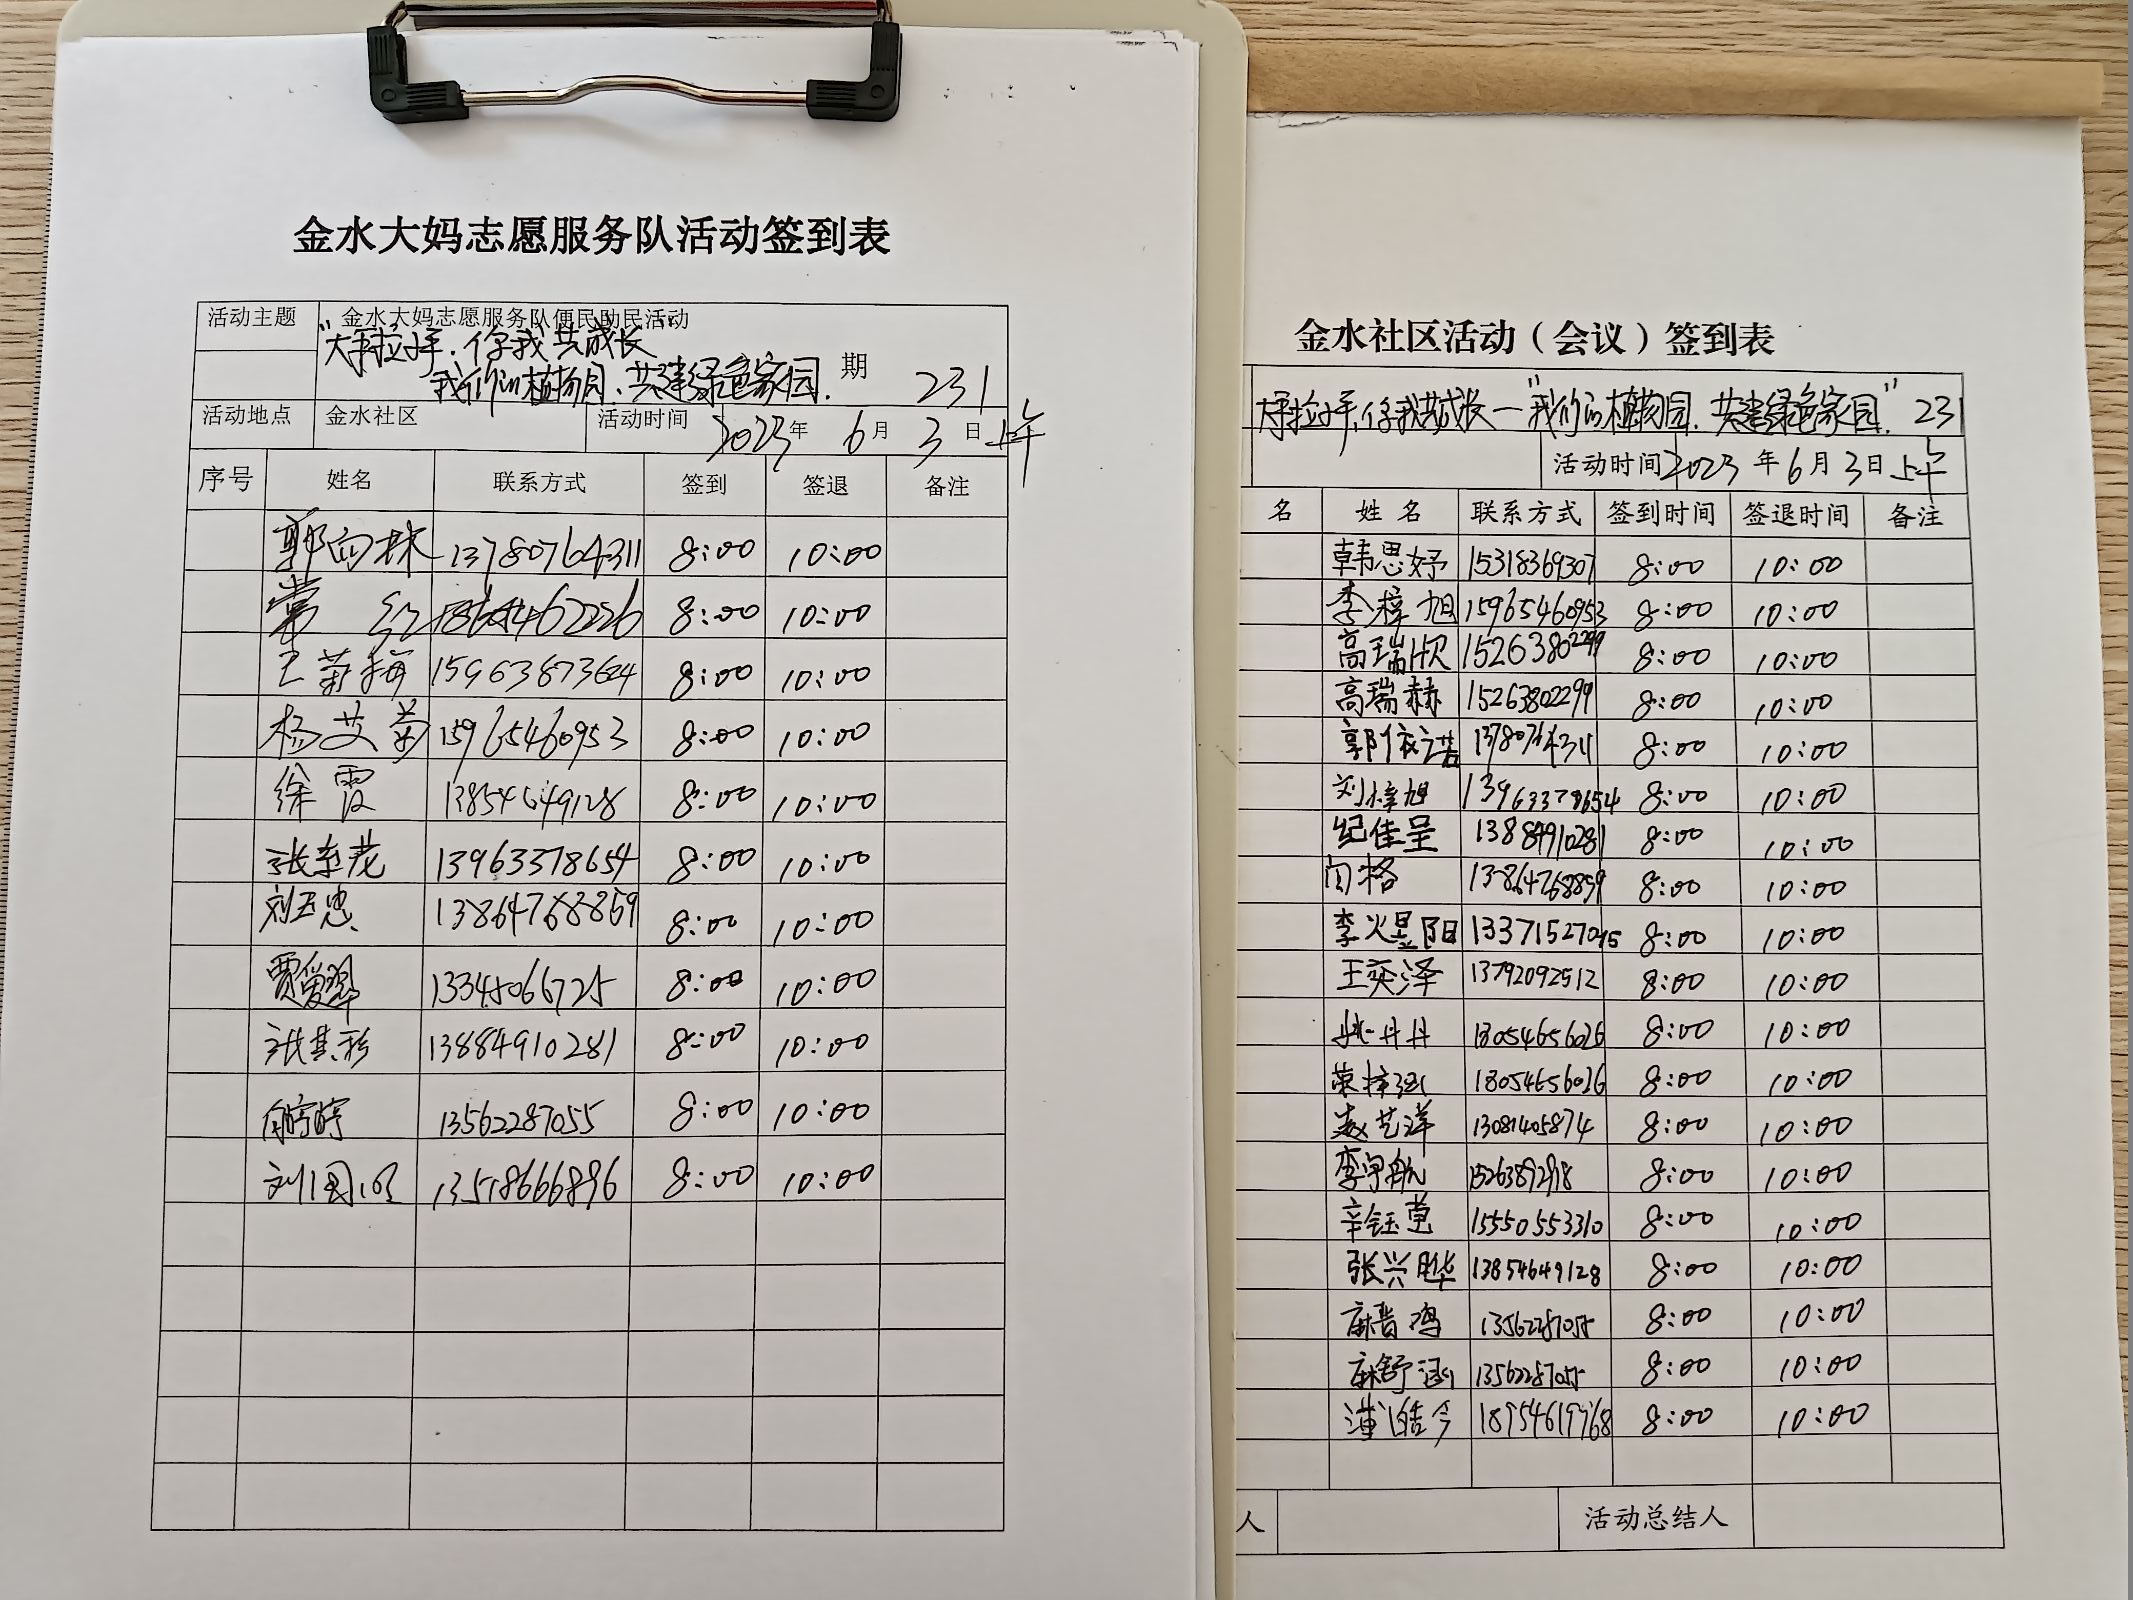 金水大妈志愿服务队活动签到表
活动主题 金水大妈志愿服务队便民助民活动
"大手拉小手,你我共成长"
我们的植物园、共建绿色家园. 期 231
活动地点 金水社区 活动时间 2023年 6月 3日 上午
序号 姓名 联系方式 签到 签退 备注
郭向林 13780764311 8:00 10:00
常 红 8:00 10:00
王菊梅 15963873624 8:00 10:00
杨艾菊 15965460953 8:00 10:00
徐霞 13854649128 8:00 10:00
13963378654 8:00 10:00
刘玉忠 13864768859 8:00 10:00
贾爱翠 13345066725 8:00 10:00
13884910281 8:00 10:00
13562287055 8:00 10:00
8:00 10:00
金水社区活动(会议)签到表
大手拉小手,你我共成长—"我们的植物园、共建绿色家园." 231
活动时间 2023年6月3日上午
名 姓名 联系方式 签到时间 签退时间 备注
韩思妤 15318369307 8:00 10:00
李梓旭 15965460953 8:00 10:00
高瑞欣 15263802299 8:00 10:00
高瑞赫 15263802299 8:00 10:00
郭依诺 13780764311 8:00 10:00
刘梓旭 13963378654 8:00 10:00
纪佳呈 13884910281 8:00 10:00
13864768859 8:00 10:00
李煜阳 8:00 10:00
王奕泽 13792092512 8:00 10:00
姚丹丹 18054656026 8:00 10:00
18054656026 8:00 10:00
赵艺洋 8:00 10:00
李宇航 8:00 10:00
辛钰莹 15550553310 8:00 10:00
张兴晔 13854649128 8:00 10:00
13562287055 8:00 10:00
麻舒涵 13562287055 8:00 10:00
8:00 10:00
人 活动总结人